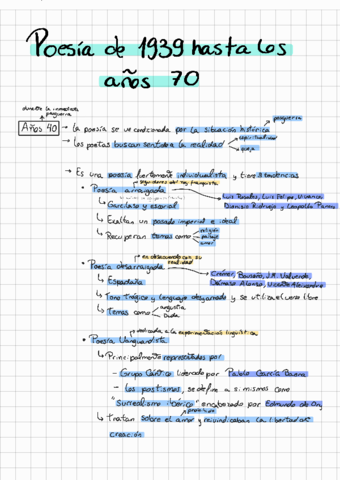 Poesía de 1939 hasta los
años 70
durante la inmediata
posguerra
Años 40 → La poesía se ve condicionada por la situación histórica → posguerra
→ Los poetas buscan sentido a la realidad → espiritualidad
→ queja
→ Es una poesía fuertemente individualista y tiene 3 tendencias
seguidores del reg. franquista
• Poesía arraigada → Luis Rosales, Luis Felipe Vivanco,
Dionisio Ridruejo y Leopoldo Panero
↳ Garcilaso y escorial
↳ Exaltan un pasado imperial e ideal
↳ Recuperan temas como → religión
→ paisaje
→ amor
en desacuerdo con su
realidad
• Poesía desarraigada → Crémer, Bousoño, J.M. Valverde,
Dámaso Alonso, Vicente Aleixandre
↳ Espadaña
↳ Tono trágico y lenguaje desgarrado y se utiliza el verso libre
↳ Temas como → angustia
→ Duda
dedicada a la experimentación lingüística
• Poesía Vanguardista
↳ Principalmente representadas por
- Grupo Cántico liderado por Pablo García Baena
- Los postismos, se define a si mismos como
"Surrealismo ibérico" encabezado por Edmundo de Ory
↳ Tratan sobre el amor y reivindicaban la libertad de
creación